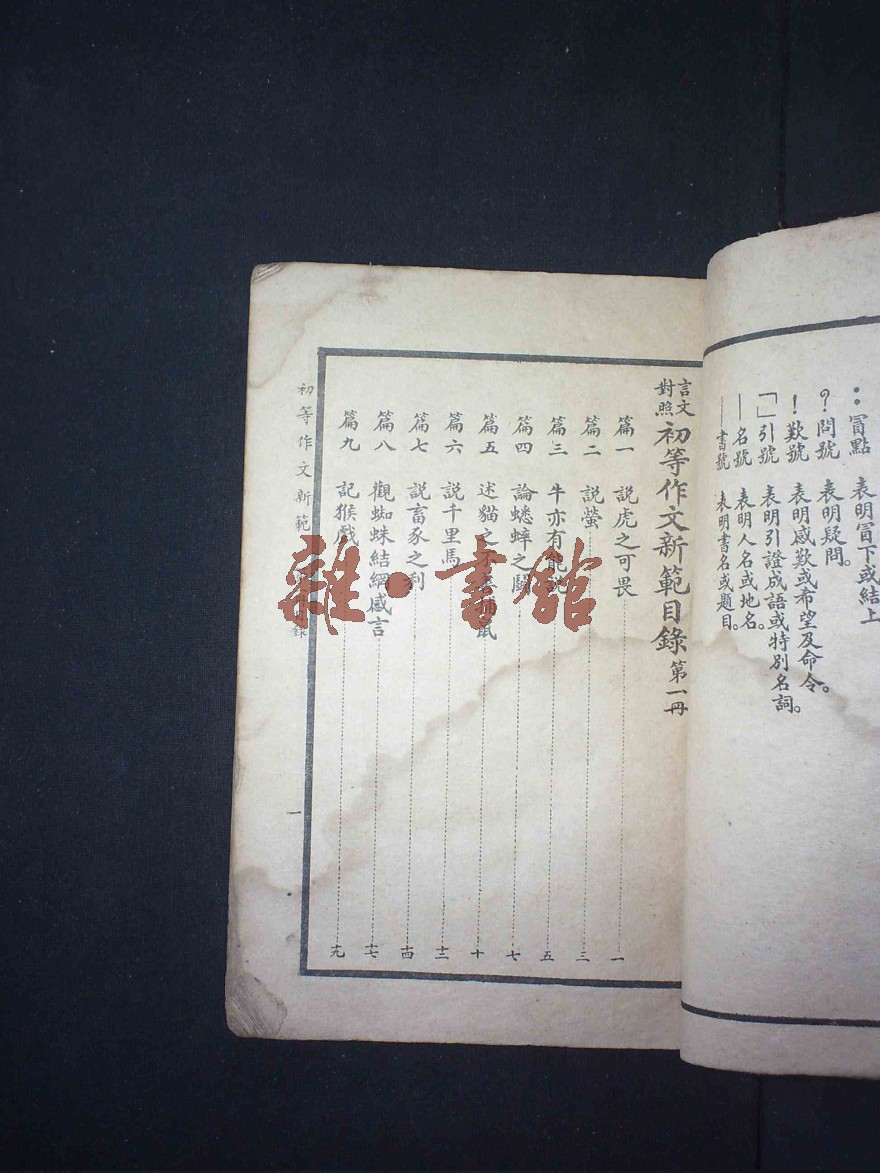 ：冒點　表明冒下或結上
？問號　表明疑問。
！歎號　表明感歎或希望及命令。
「」引號　表明引證成語或特別名詞。
—名號　表明人名或地名。
﹏書號　表明書名或題目。
言文對照初等作文新範目錄 第一冊
篇一　說虎之可畏……一
篇二　說螢……三
篇三　牛亦有能……五
篇四　論蟋蟀之鬬……七
篇五　述貓之……鼠……十
篇六　說千里馬……十三
篇七　說畜豕之利……十四
篇八　觀蜘蛛結網感言……十七
篇九　記猴戲……十九
初等作文新範　錄　一
雜·書館